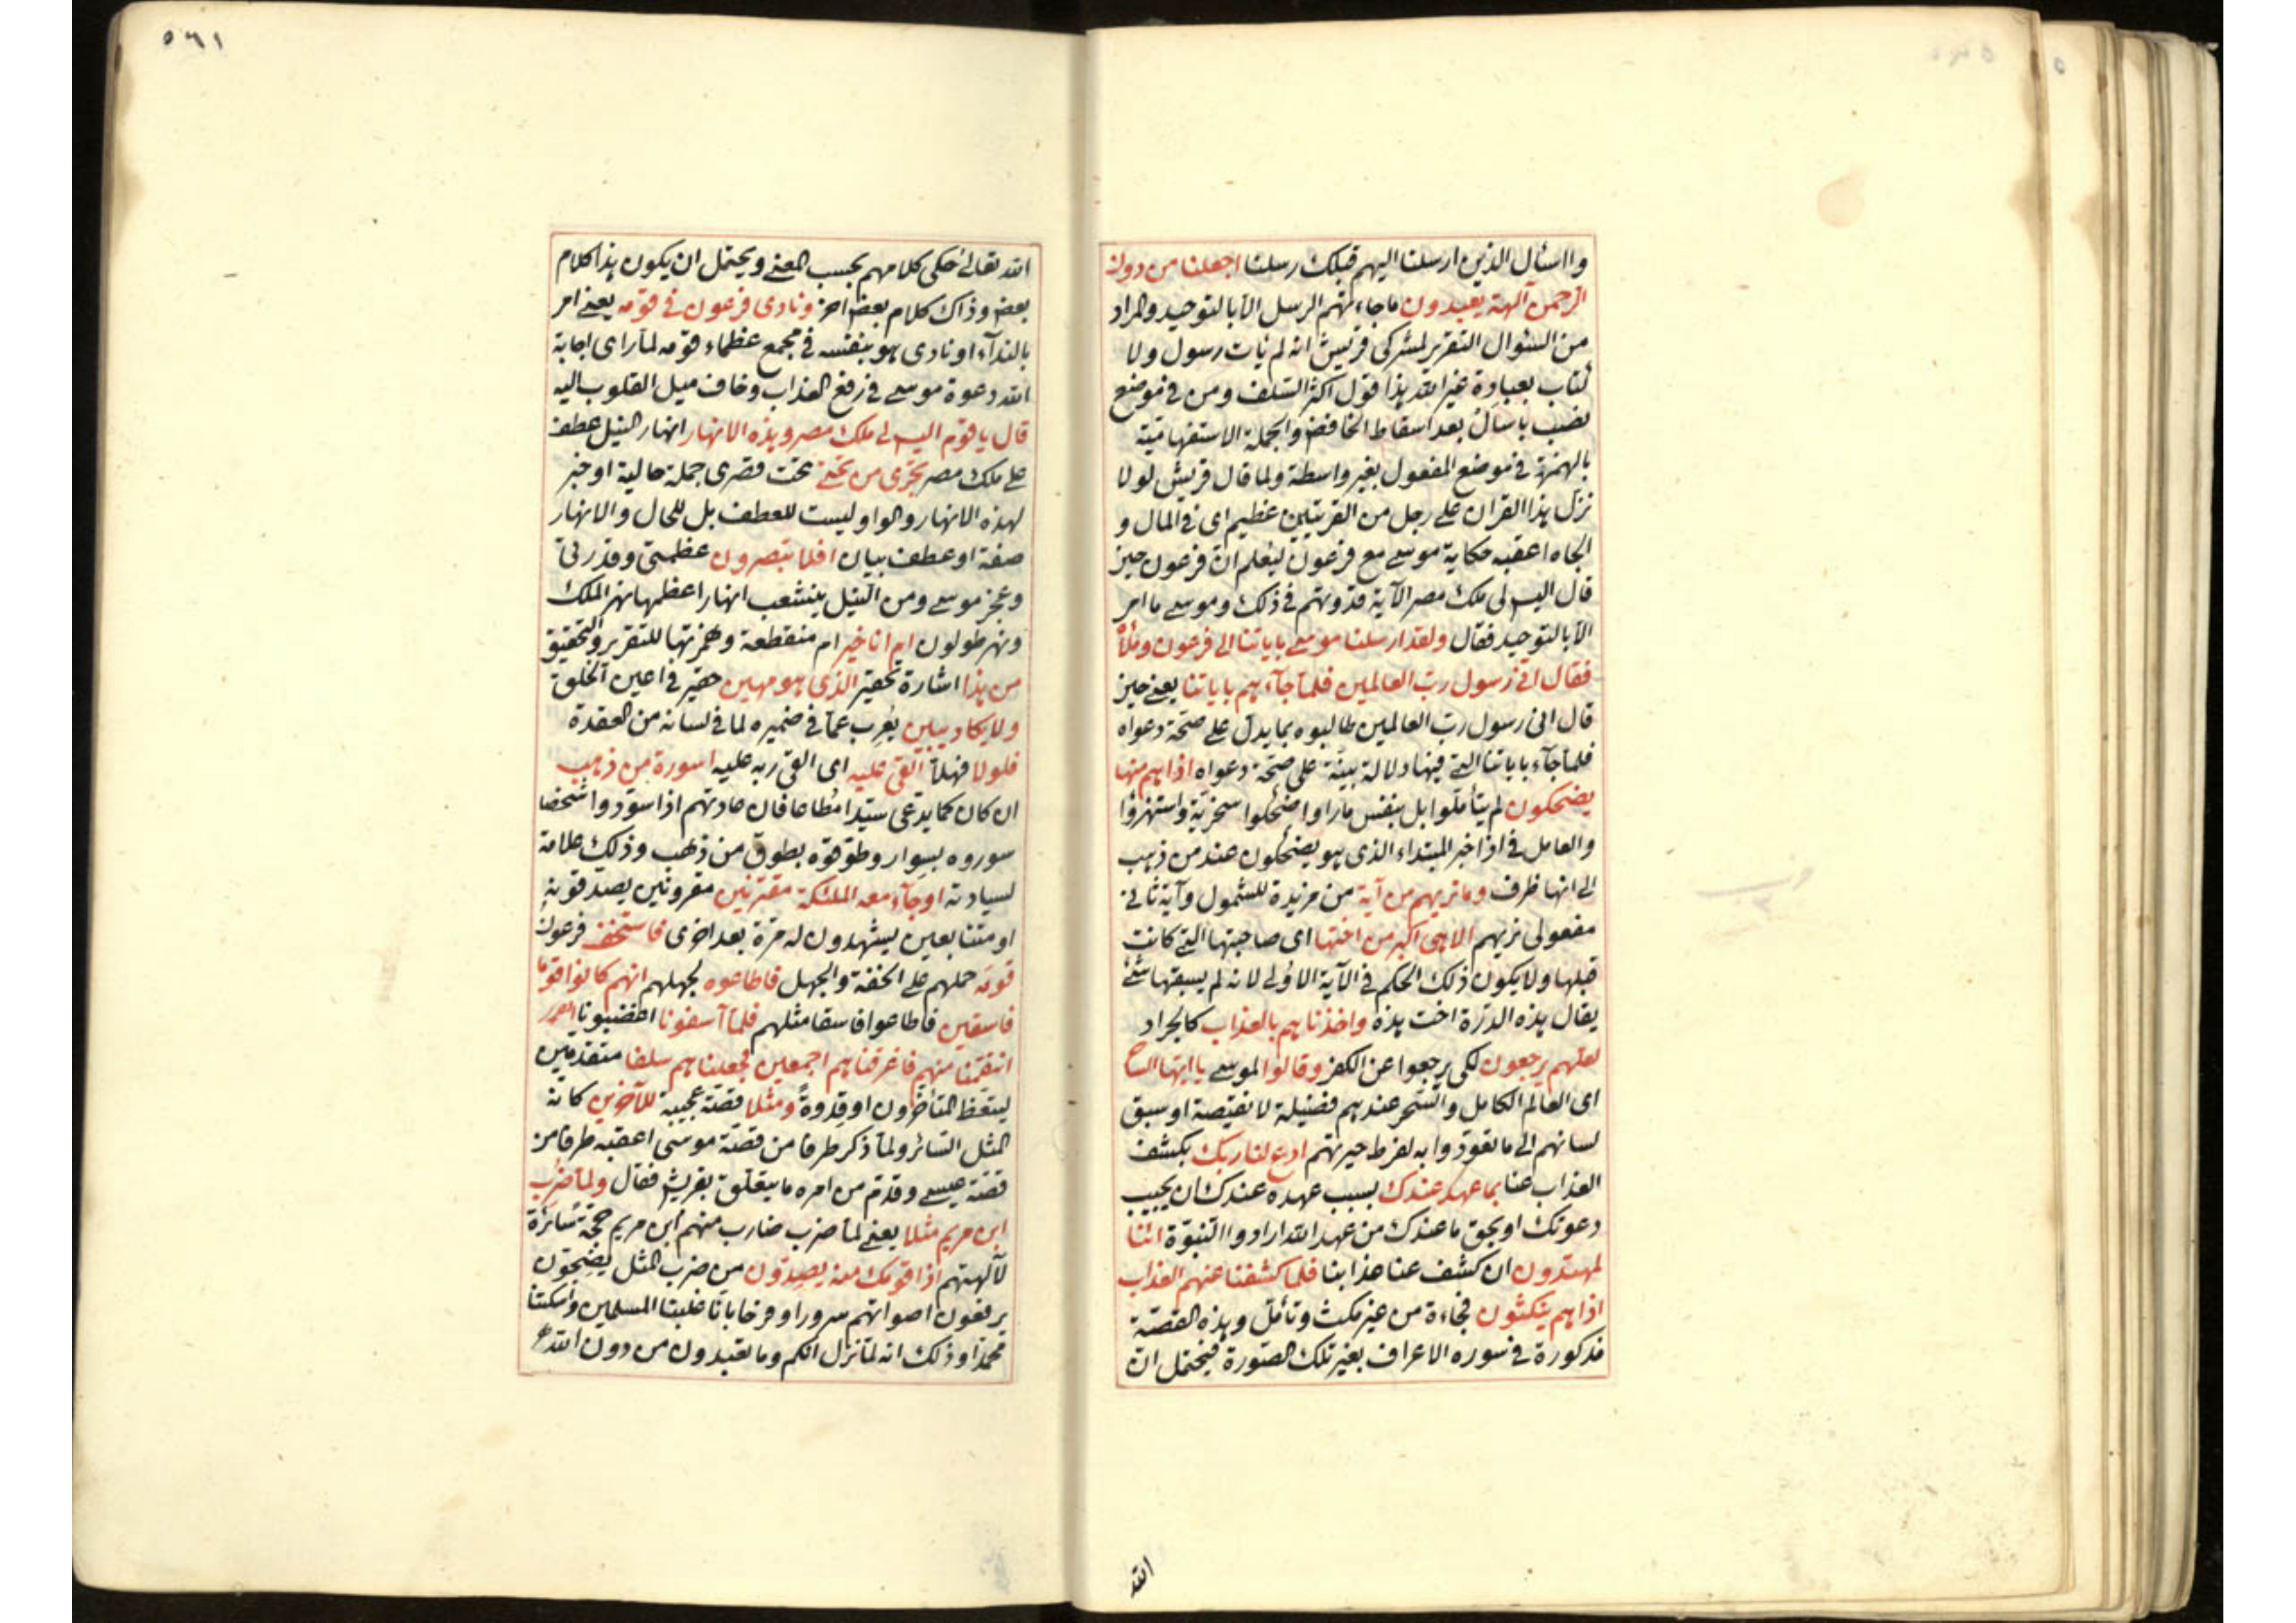 واسئال الذين ارسلنا اليهم قبلك رسلنا اجعلنا من دون
الرحمن آلهة يعبدون ما جاءتهم الرسل الا بالتوحيد والمراد
من السئوال التقرير لمشركى قريش انه لم يات رسول ولا
كتاب بعبادة غير الله هذا قول اكثر السلف ومن فى موضع
نصب باسال بعد اسقاط الخافض والجملة الاستفهامية
بالهمزة فى موضع المفعول بغير واسطة ولما قال قريش لولا
نزل هذا القران على رجل من القريتين عظيم اى فى المال و
الجاه اعقبه حكاية موسى مع فرعون ليعلم ان فرعون حين
قال اليس لى ملك مصر الآية قدوتهم فى ذلك وموسى ما امر
الا بالتوحيد فقال ولقد ارسلنا موسى باياتنا الى فرعون وملأه
فقال انى رسول رب العالمين فلما جآءهم باياتنا يعنى حين
قال انى رسول رب العالمين طالبوه بما يدل على صحة دعواه
فلما جآء باياتنا التى فيها دلالة بينة على صحة دعواه اذا هم منها
يضحكون لم يتأملوا بل بنفس ما راوا ضحكوا سخرية واستهزؤا
والعامل فى اذا خبر المبتداء الذى هو يضحكون عند من ذهب
الى انها ظرف وما نريهم من آية من مزيدة للشمول وآية ثانى
مفعولى نريهم الا هى اكبر من اختها اى صاحبتها التى كانت
قبلها ولا يكون ذلك الحكم فى الآية الاولى لانه لم يسبقها شئ
يقال هذه الدرة اخت هذه واخذناهم بالعذاب كالجراد
لعلهم يرجعون لكى يرجعوا عن الكفر وقالوا لموسى يا ايها الساح
اى العالم الكامل والسحر عندهم فضيلة لا نقيصة او سبق
لسانهم الى ما تعودوا به لفرط حيرتهم ادع لنا ربك بكشف
العذاب عنا بما عهد عندك بسبب عهده عندك ان يجيب
دعوتك او بحق ما عندك من عهد الله ارادوا النبوة اننا
لمهتدون ان كشف عنا عذابنا فلما كشفنا عنهم العذاب
اذا هم ينكثون فجاءة من غير مكث وتأمل وهذه القصة
مذكورة فى سوره الاعراف بغير تلك الصورة فيحتمل ان
الله
٥٦١
الله تعالى حكى كلامهم بحسب المعنى ويحتمل ان يكون هذا كلام
بعض وذاك كلام بعض اخر ونادى فرعون فى قومه يعنى امر
بالندآء او نادى هو بنفسه فى مجمع عظماء قومه لما راى اجابة
الله دعوة موسى فى رفع العذاب وخاف ميل القلوب اليه
قال يا قوم اليس لى ملك مصر وهذه الانهار انهار النيل عطف
على ملك مصر تجرى من تحتى تحت قصرى جملة حالية او خبر
لهذه الانهار والواو ليست للعطف بل للحال والانهار
صفة او عطف بيان افلا تبصرون عظمتى وقدرتى
وعجز موسى ومن النيل ينشعب انهار اعظمها نهر الملك
ونهر طولون ام انا خير ام منقطعة وهمزتها للتقرير والتحقيق
من هذا اشارة تحقير الذى هو مهين حقير فى اعين الخلق
ولا يكاد يبين يعرب عما فى ضميره لما فى لسانه من العقدة
فلولا فهلا القى عليه اى القى ربه عليه اسورة من ذهب
ان كان كما يدعى سيدا مطاعا فان عادتهم اذا سودوا شخصا
سوروه بسوار وطوقوه بطوق من ذهب وذلك علامة
لسيادته او جآء معه الملئكة مقترنين مقرونين يصدقونه
او متتابعين ليشهدون له مرة بعد اخرى فاستخف فرعون
قومه حملهم على الخفة والجهل فاطاعوه لجهلهم انهم كانوا قوما
فاسقين فاطاعوا فاسقا مثلهم فلما آسفونا اغضبونا
انتقمنا منهم فاغرقناهم اجمعين فجعلناهم سلفا متقدمين
ليتعظ المتأخرون او قدوة ومثلا قصة عجيبة للآخرين كانه
المثل السائر ولما ذكر طرفا من قصة موسى اعقبه طرفا من
قصة عيسى وقدم من امره ما يتعلق بقريش فقال ولما ضرب
ابن مريم مثلا يعنى لما ضرب ضارب منهم ابن مريم حجة سائرة
لآلهتهم اذا قومك منه يصدون من ضرب المثل يضجون
يرفعون اصواتهم سرورا وفرحا بانا غلبنا المسلمين واسكتنا
محمدا وذلك انه لما نزل انكم وما تعبدون من دون الله